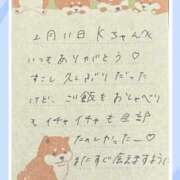 2月11日 Kちゃんへ
いつもありがとう♡
すこし久しぶりだった
けど、ご飯もおしゃべり
もイチャイチャも全部
たのしかった―♡
またすぐ会えますように